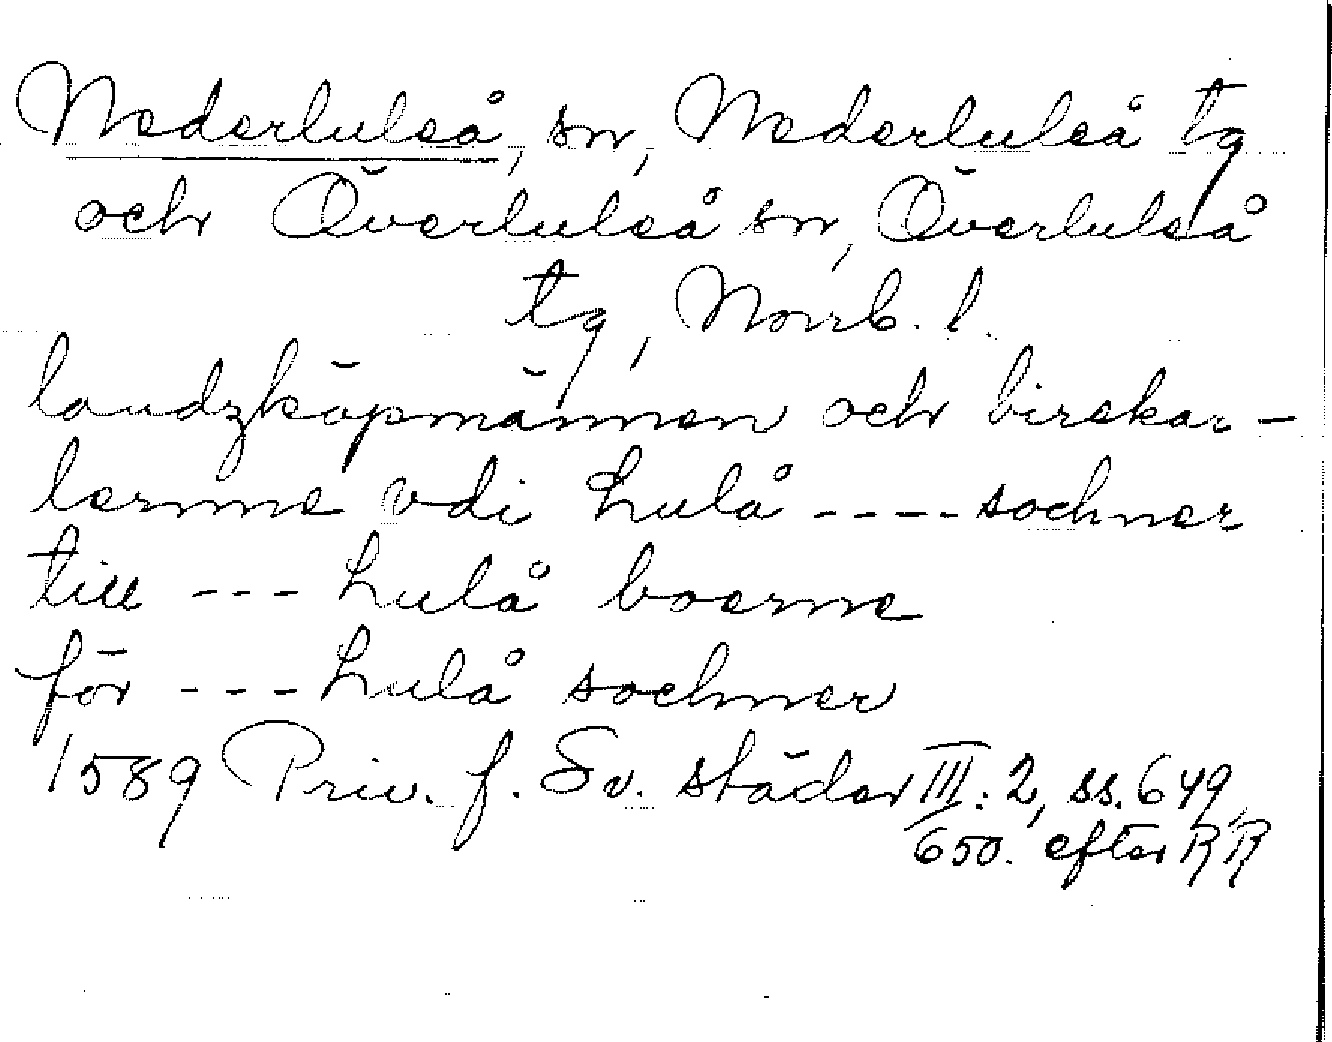 Nederluleå, sn, Nederluleå tg
och Överluleå sn, Överluleå
tg, Norrb. l.
landzköpmännen och birekar-
lernne vdi Lulå ---- sochner
till --- Lulå boerne
för --- Lulå sochner
1589 Priv. f. Sv. städer III: 2, ss. 649,
650. efter RR